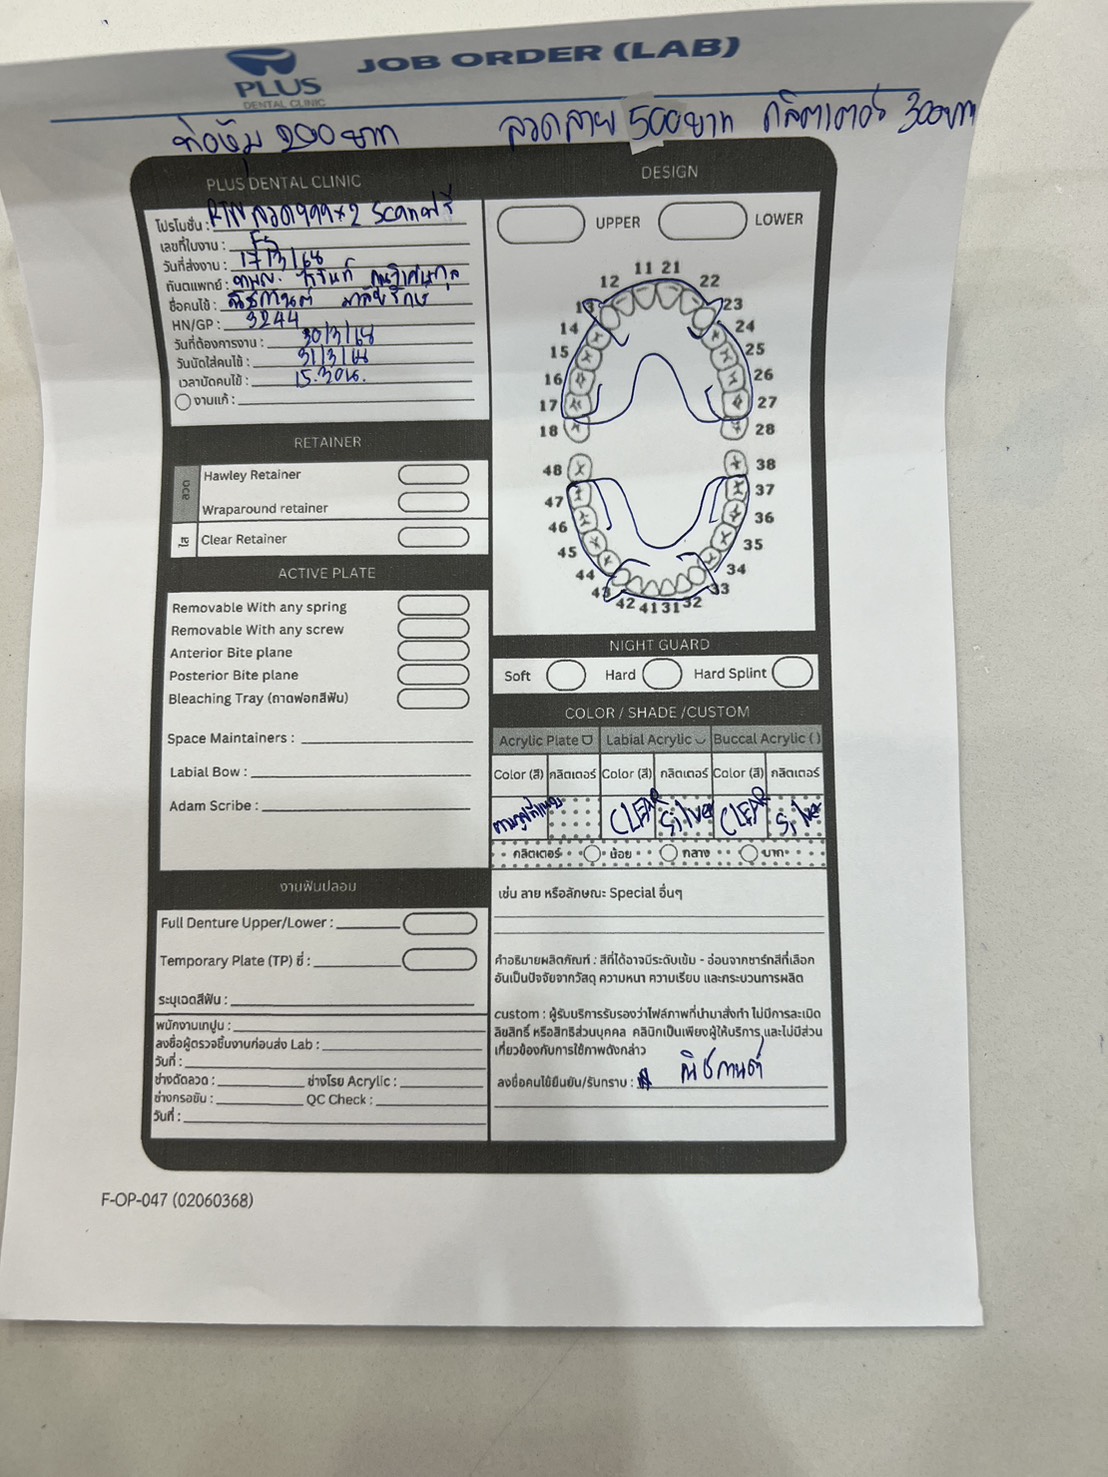 PLUS
DENTAL CLINIC
JOB ORDER (LAB)
200 บาท
ลวดลาย 500 บาท กลิตเตอร์ 300บาท
PLUS DENTAL CLINIC
โปรโมชั่น : RTN ลวด 999x2 Scanฟรี
เลขที่ใบงาน : F5
วันที่ส่งงาน : 17/3/68
ทันตแพทย์ : ทพญ.
ชื่อคนไข้ : ณิชกานต์
HN/GP : 3244
วันที่ต้องการงาน : 30/3/68
วันนัดใส่คนไข้ : 31/3/68
เวลานัดคนไข้ : 15.30น.
งานแก้ :
RETAINER
ลวด
Hawley Retainer
Wraparound retainer
ใส
Clear Retainer
ACTIVE PLATE
Removable With any spring
Removable With any screw
Anterior Bite plane
Posterior Bite plane
Bleaching Tray (ถาดฟอกสีฟัน)
Space Maintainers :
Labial Bow :
Adam Scribe :
งานฟันปลอม
Full Denture Upper/Lower :
Temporary Plate (TP) ซี่ :
ระบุเฉดสีฟัน :
พนักงานเทปูน :
ลงชื่อผู้ตรวจชิ้นงานก่อนส่ง Lab :
วันที่ :
ช่างดัดลวด : ช่างโรย Acrylic :
ช่างกรอขัน : QC Check :
วันที่ :
DESIGN
UPPER LOWER
11 21
12 22
13 23
14 24
15 25
16 26
17 27
18 28
48 38
47 37
46 36
45 35
44 34
43 33
42 41 31 32
NIGHT GUARD
Soft Hard Hard Splint
COLOR / SHADE /CUSTOM
Acrylic Plate Labial Acrylic Buccal Acrylic ( )
Color (สี) กลิตเตอร์ Color (สี) กลิตเตอร์ Color (สี) กลิตเตอร์
ตามรูปที่แนบ CLEAR Silver CLEAR Silver
กลิตเตอร์ น้อย กลาง มาก
เช่น ลาย หรือลักษณะ Special อื่นๆ
คำอธิบายผลิตภัณฑ์ : สีที่ได้อาจมีระดับเข้ม - อ่อนจากชาร์ทสีที่เลือก
อันเป็นปัจจัยจากวัสดุ ความหนา ความเรียบ และกระบวนการผลิต
custom : ผู้รับบริการรับรองว่าไฟล์ภาพที่นำมาสั่งทำ ไม่มีการละเมิด
ลิขสิทธิ์ หรือสิทธิส่วนบุคคล คลินิกเป็นเพียงผู้ให้บริการ และไม่มีส่วน
เกี่ยวข้องกับการใช้ภาพดังกล่าว
ลงชื่อคนไข้ยืนยัน/รับทราบ : ณิชกานต์
F-OP-047 (02060368)